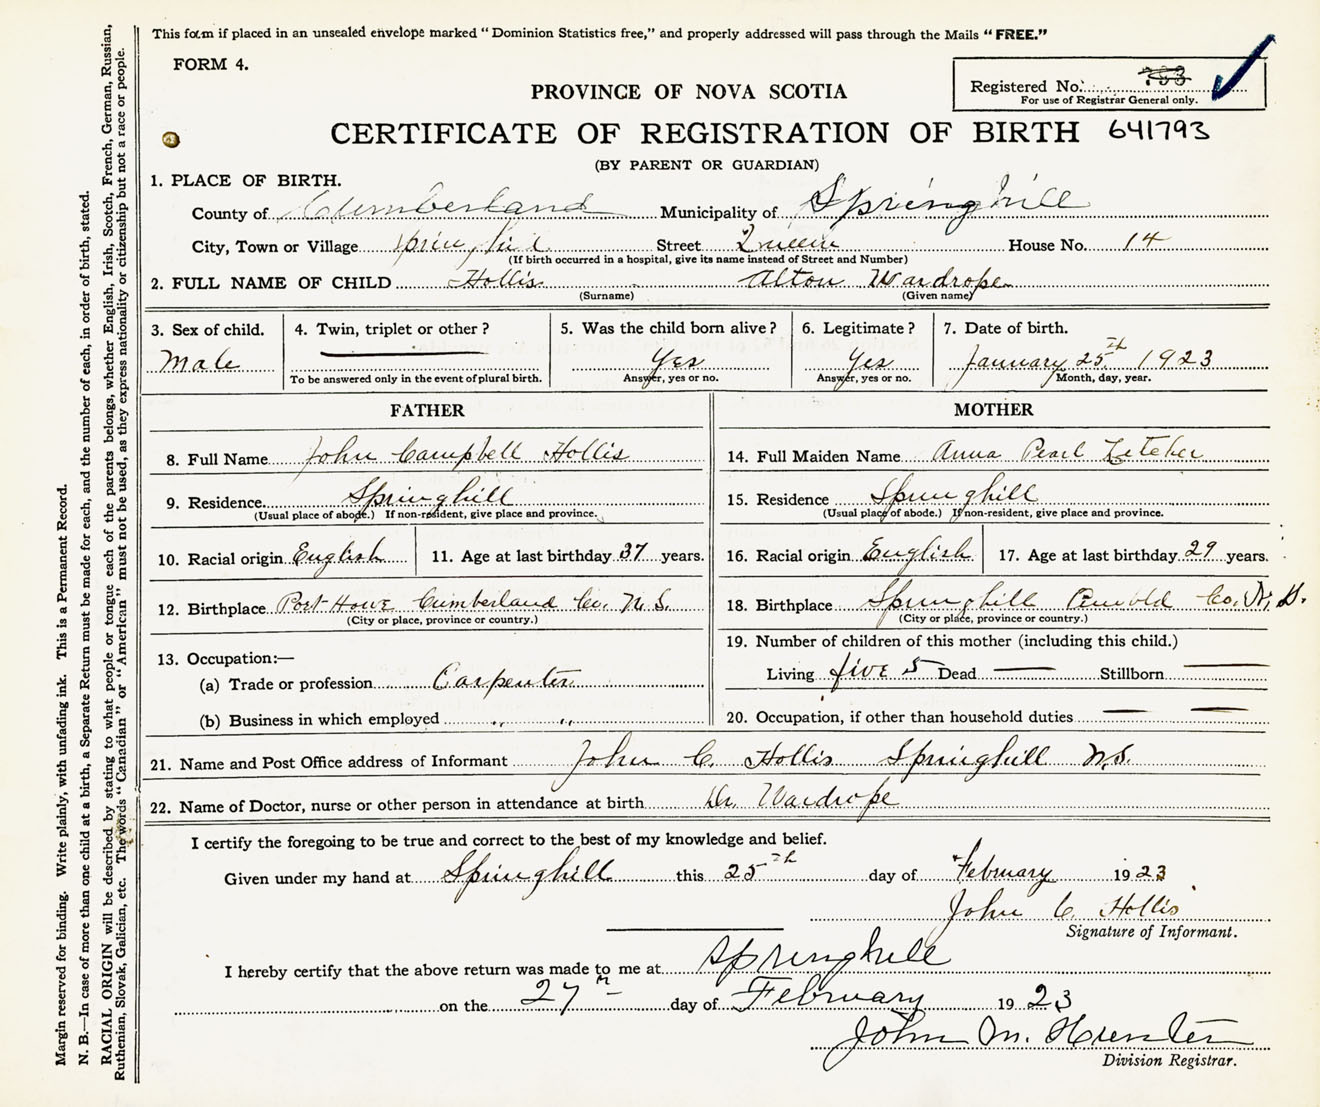 This form if placed in an unsealed envelope marked "Dominion Statistics free," and properly addressed will pass through the Mails "FREE."
FORM 4.
Registered No. 733
For use of Registrar General only.
PROVINCE OF NOVA SCOTIA
CERTIFICATE OF REGISTRATION OF BIRTH 641793
(BY PARENT OR GUARDIAN)
1. PLACE OF BIRTH.
County of Cumberland Municipality of Springhill
City, Town or Village Springhill Street Queen House No. 14
(If birth occurred in a hospital, give its name instead of Street and Number)
2. FULL NAME OF CHILD Hollis Alton Wardrope
(Surname) (Given name)
3. Sex of child. 4. Twin, triplet or other? 5. Was the child born alive? 6. Legitimate? 7. Date of birth.
Male Yes Yes January 25th 1923
To be answered only in the event of plural birth. Answer, yes or no. Answer, yes or no. Month, day, year.
FATHER MOTHER
8. Full Name John Campbell Hollis 14. Full Maiden Name Anna Pearl
9. Residence Springhill 15. Residence Springhill
(Usual place of abode.) If non-resident, give place and province. (Usual place of abode.) If non-resident, give place and province.
10. Racial origin English 11. Age at last birthday 37 years. 16. Racial origin English 17. Age at last birthday 29 years.
12. Birthplace Port Howe Cumberland Co. N.S. 18. Birthplace Springhill Co. N.S.
(City or place, province or country.) (City or place, province or country.)
13. Occupation:— 19. Number of children of this mother (including this child.)
(a) Trade or profession Carpenter Living five 5 Dead Stillborn
(b) Business in which employed " " 20. Occupation, if other than household duties
21. Name and Post Office address of Informant John C. Hollis Springhill N.S.
22. Name of Doctor, nurse or other person in attendance at birth Dr Wardrope
I certify the foregoing to be true and correct to the best of my knowledge and belief.
Given under my hand at Springhill this 25th day of February 1923
John C. Hollis
Signature of Informant.
I hereby certify that the above return was made to me at Springhill
on the 27th day of February 1923
John M. Hunter
Division Registrar.
Margin reserved for binding. Write plainly, with unfading ink. This is a Permanent Record.
N. B.—In case of more than one child at a birth, a Separate Return must be made for each, and the number of each, in order of birth, stated.
RACIAL ORIGIN will be described by stating to what people or tongue each of the parents belongs, whether English, Irish, Scotch, French, German, Russian,
Ruthenian, Slovak, Galician, etc. The words "Canadian" or "American" must not be used, as they express nationality or citizenship but not a race or people.